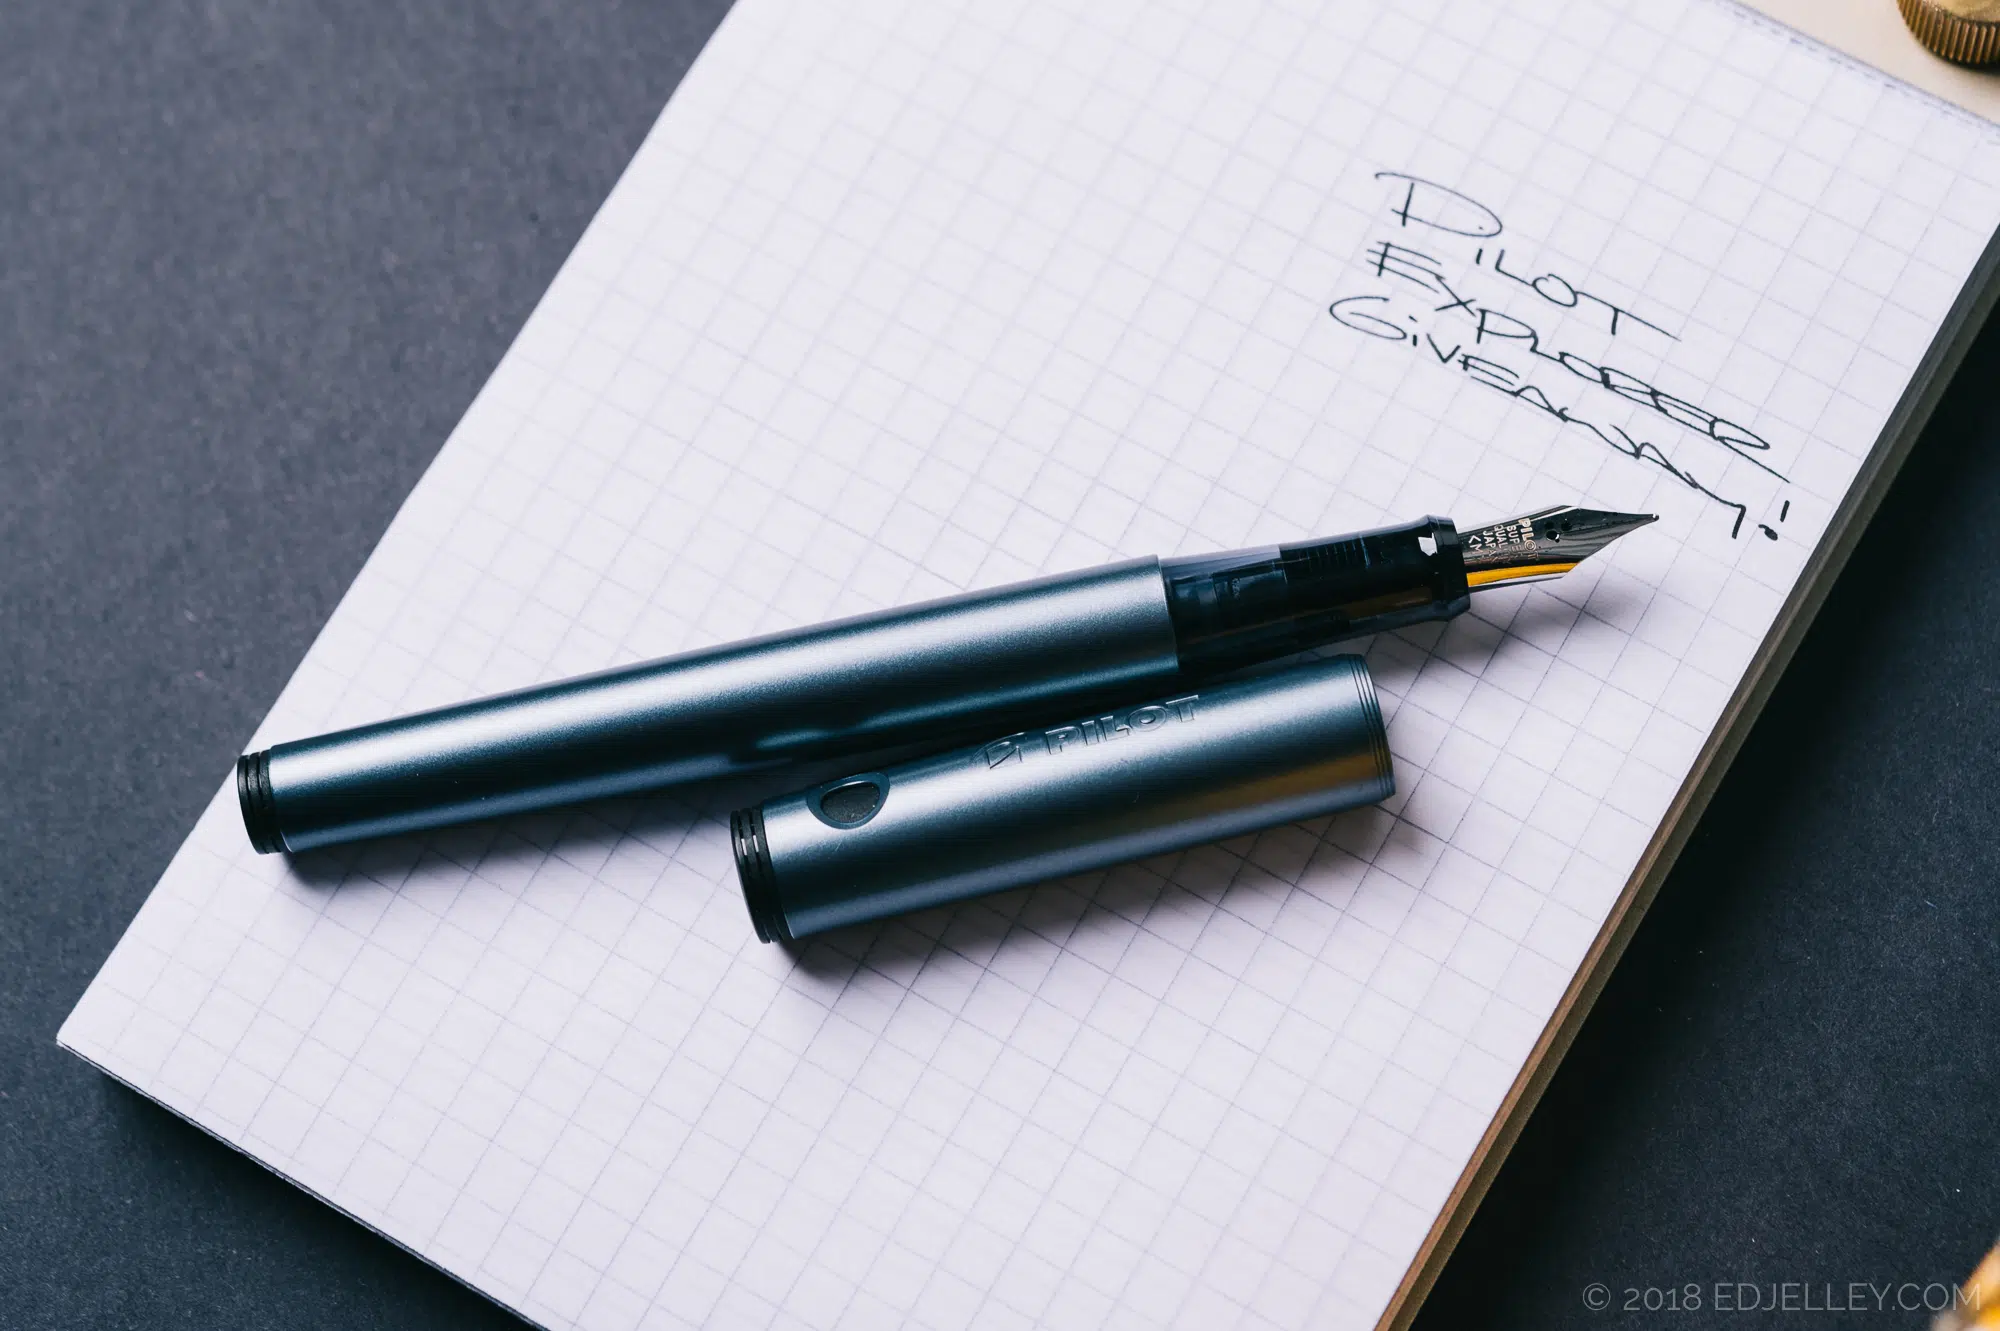 PILOT
EXPLORER
GIVEAWAY!
PILOT
SUPER
QUALITY
JAPAN
PILOT
© 2018 EDJELLEY.COM